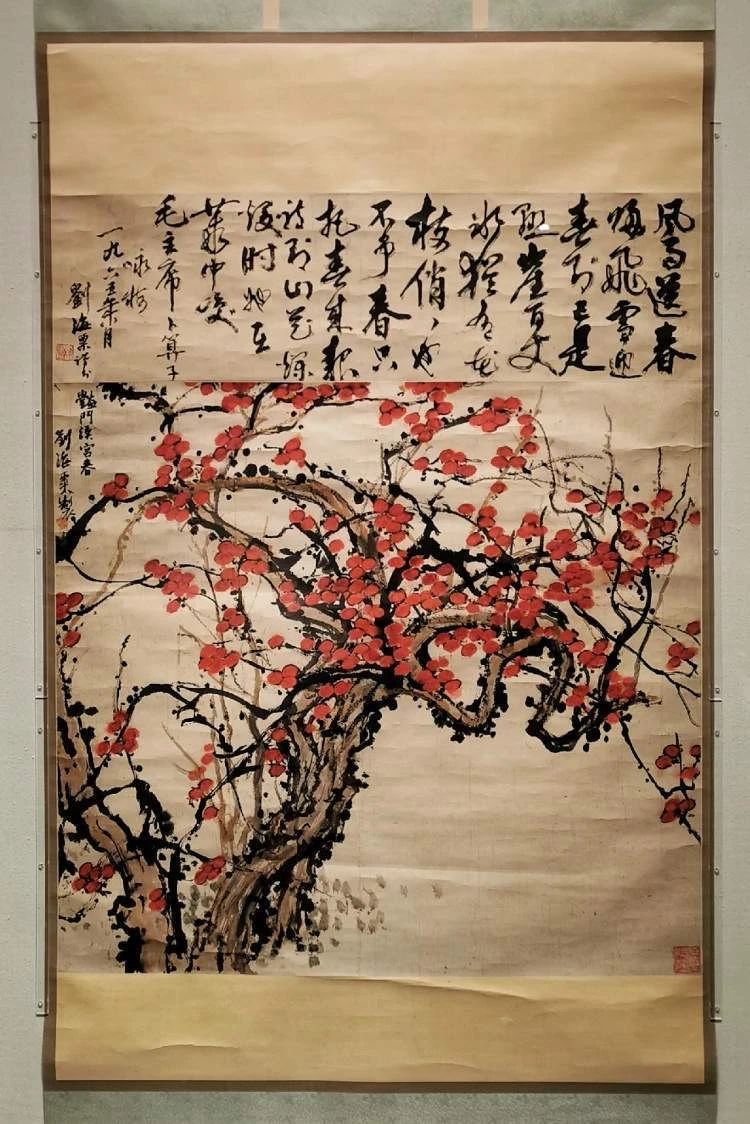 风雨送春
歸飛雪迎
春到已是
懸崖百丈
冰猶有花
枝俏、也
不争春只
把春来報
待到山花爛
漫时她在
叢中笑
毛主席卜算子
咏梅
一九六五年月
劉海粟
豔鬥漢宮春
劉海粟